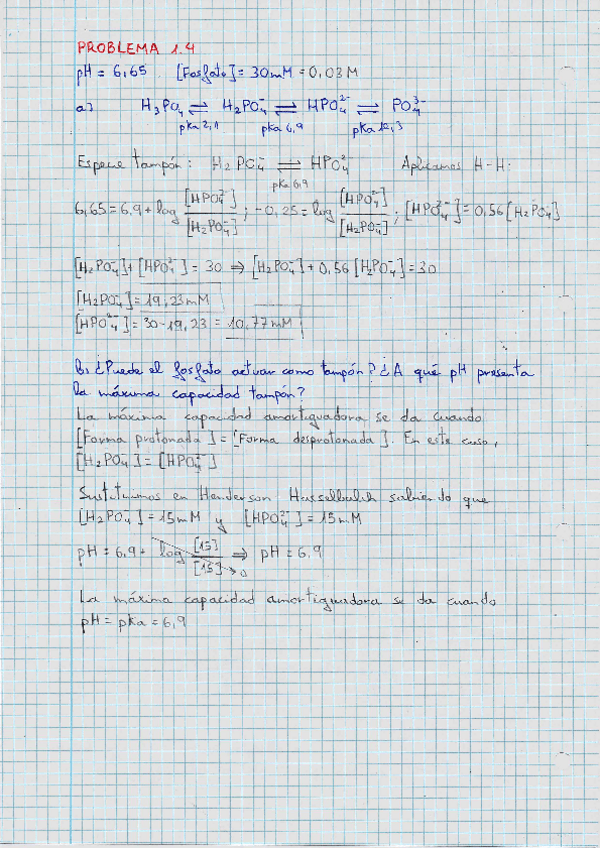 PROBLEMA 1.4
pH = 6,65 [Fosfato] = 30mM = 0,03 M
a) H₃PO₄ ⇌ H₂PO₄⁻ ⇌ HPO₄²⁻ ⇌ PO₄³⁻
pKa 2,1 pKa 6,9 pKa 12,3
Especie tampón: H₂PO₄⁻ ⇌ HPO₄²⁻ Aplicamos H-H:
pKa 6,9
6,65 = 6,9 + log [HPO₄²⁻]/[H₂PO₄⁻] ; -0,25 = log [HPO₄²⁻]/[H₂PO₄⁻] ; [HPO₄²⁻] = 0,56 [H₂PO₄⁻]
[H₂PO₄⁻] + [HPO₄²⁻] = 30 ⇒ [H₂PO₄⁻] + 0,56 [H₂PO₄⁻] = 30
[H₂PO₄⁻] = 19,23mM
[HPO₄²⁻] = 30 - 19,23 = 10,77mM
b) ¿Puede el fosfato actuar como tampón? ¿A qué pH presenta
la máxima capacidad tampón?
La máxima capacidad amortiguadora se da cuando
[Forma protonada] = [Forma desprotonada]. En este caso,
[H₂PO₄⁻] = [HPO₄²⁻]
Sustituimos en Henderson Hasselbalch sabiendo que
[H₂PO₄⁻] = 15mM y [HPO₄²⁻] = 15mM
pH = 6,9 + log [15]/[15] → 0 ⇒ pH = 6,9
La máxima capacidad amortiguadora se da cuando
pH = pKa = 6,9